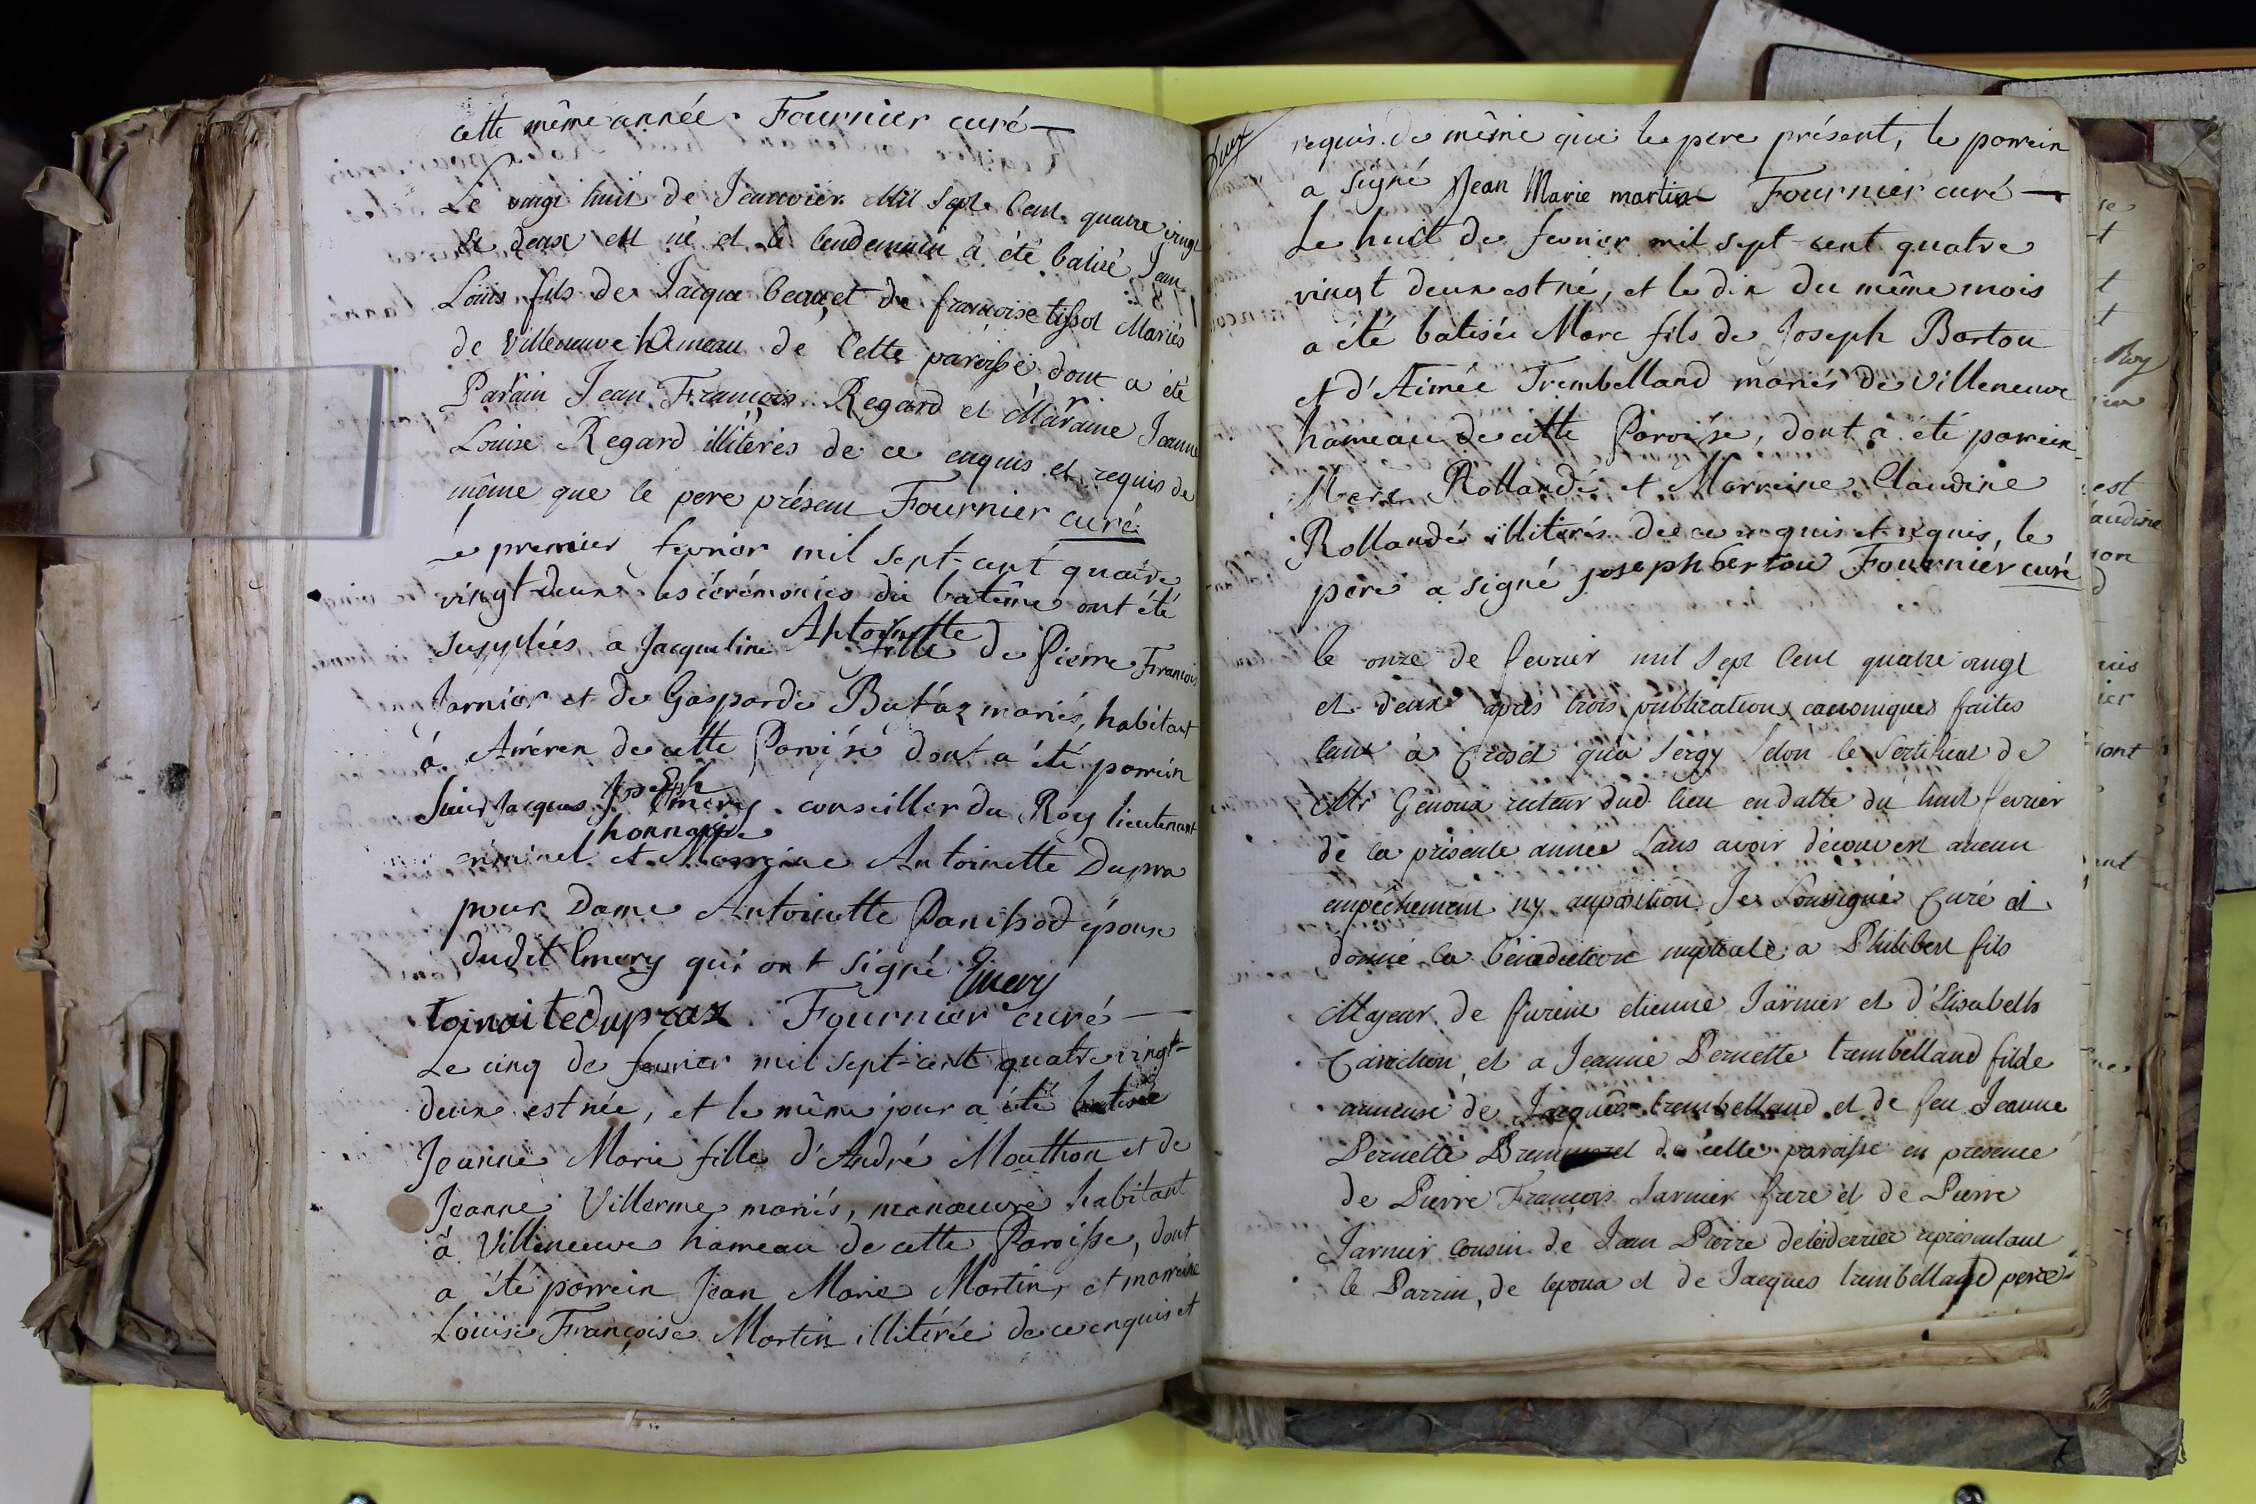 cette même année. Fournier curé
Le vingt huit de Janvier Mil Sept Cent quatre vingt
et deux est né et le lendemain à été batisé Jean
Louis fils de Jacque becquet de françoise tissot Mariés
de Villeneuve hameau de Cette paroisse dont a été
Parain Jean François Regard et Maraine Jeanne
Louise Regard illiterés de ce enquis et requis de
même que le pere présent Fournier curé
Le premier fevrier mil sept-cent quatre
vingt-deux les cérémonies du batême ont été
suppléés a Jacqueline Antoinette fille de Pierre François
Jarnier et de Gasparde Butáz mariés, habitant
à de cette Paroisse dont a été parrein
Sieur Jacques Joseph Emery conseiller du Roy lieutenant
criminel honnoraire et Marreine Antoinette Dupra
pour Dame Antoinette Panissod épouse
dudit Emery qui ont signé Emery
toinaite dupraz Fournier curé
Le cinq de fevrier mil sept-cent quatre vingt-
deux est née, et le même jour a été batisée
Jeanne Marie fille d'André Mouthon et de
Jeanne Villerme mariés, manœuvre habitant
à Villeneuve hameau de cette Paroisse, dont
a été parrein Jean Marie Martin, et marreine
Louise Françoise Martin illitérée de ce enquis et
requis de même que le pere présent, le parrein
a signé Jean Marie martin Fournier curé
Le huit de fevrier mil sept-cent quatre
vingt deux est né, et le dix du même mois
a été batisée Marc fils de Joseph Bartou
et d'Aimée Trembelland mariés de Villeneuve
hameau de cette Paroisse, dont a été parrein
Marc Rollandé et Marreine Claudine
Rollandé illiterés de ce enquis et requis, le
pere a signé joseph bertou Fournier curé
le onze de fevrier mil Sept Cent quatre vingt
et deux apres trois publications canoniques faites
tant à Crozet qu'a Sergy Selon le Sertificat de
Mr Genoux recteur dud. lieu en datte du huit fevrier
de la présente année Sans avoir découvert aucun
empechement ny opposition Je Soussigné Curé ai
donné la bénédiction nuptiale a Philibert fils
Majeur de étienne Jarnier et d'Elisabeth
et a Jeanne Pernette trembelland fille
mineure de Jacques trembelland et de feu Jeanne
Pernette de cette paroisse en presence
de Pierre François Jarnier frere et de Pierre
Jarnier cousin de Jean Pierre representant
le Parrin, de lepoux et de Jacques trembelland pere